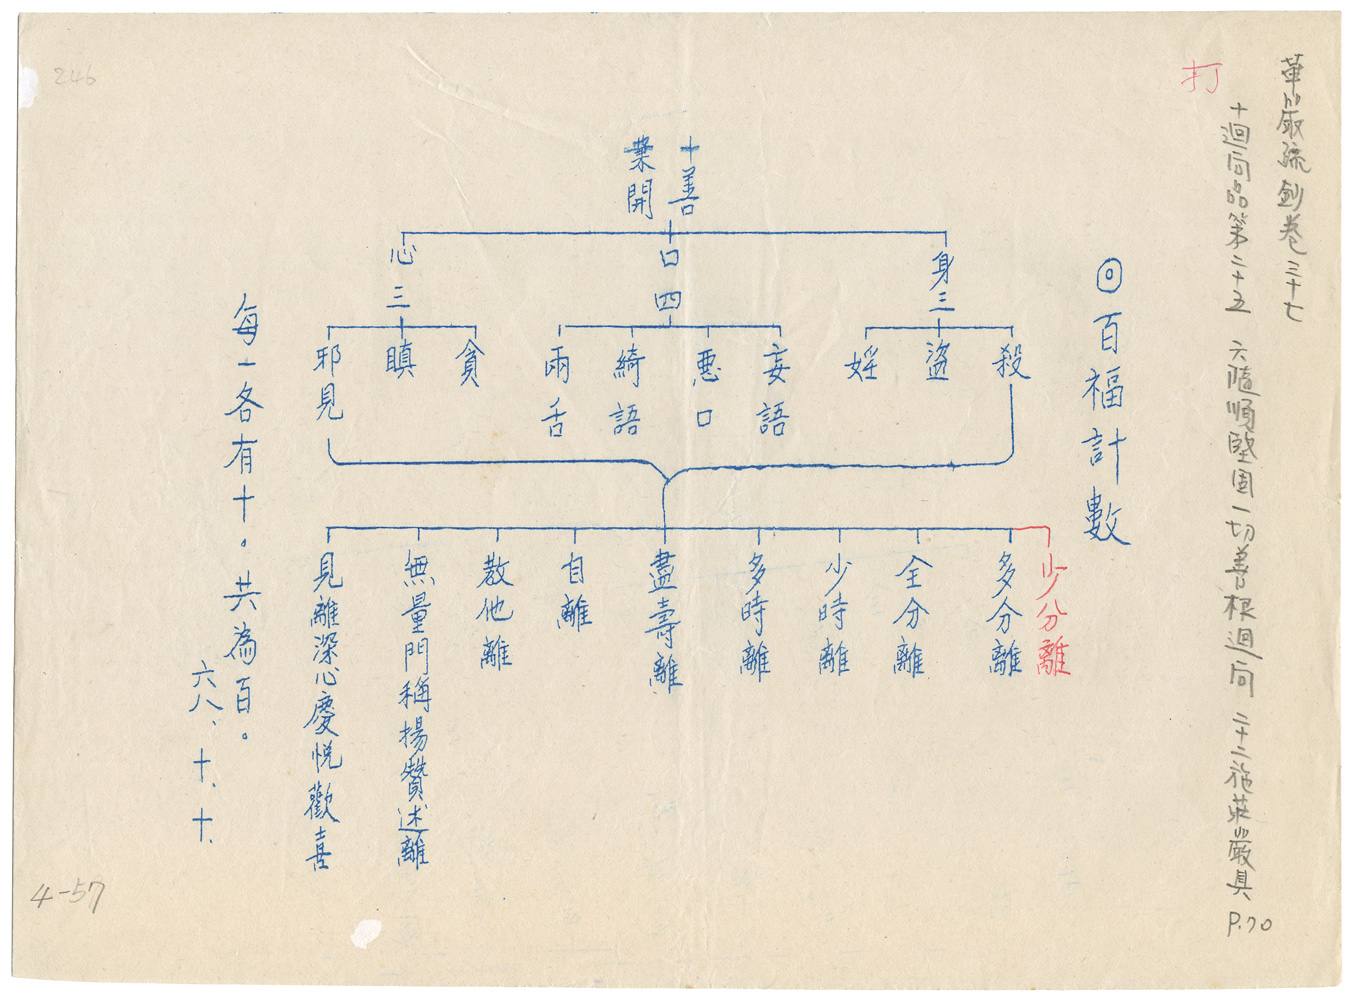 華嚴疏鈔卷三十七
十迴向品第二十五 六隨順堅固一切善根迴向 二十二施莊嚴具 P.70
打
◎百福計數
十善
業開
身三
殺
盜
婬
口四
妄語
惡口
綺語
兩舌
心三
貪
瞋
邪見
少分離
多分離
全分離
少時離
多時離
盡壽離
自離
教他離
無量門稱揚讚述離
見離深心慶悅歡喜
每一各有十。共為百。
六八、十、十、
246
4-57